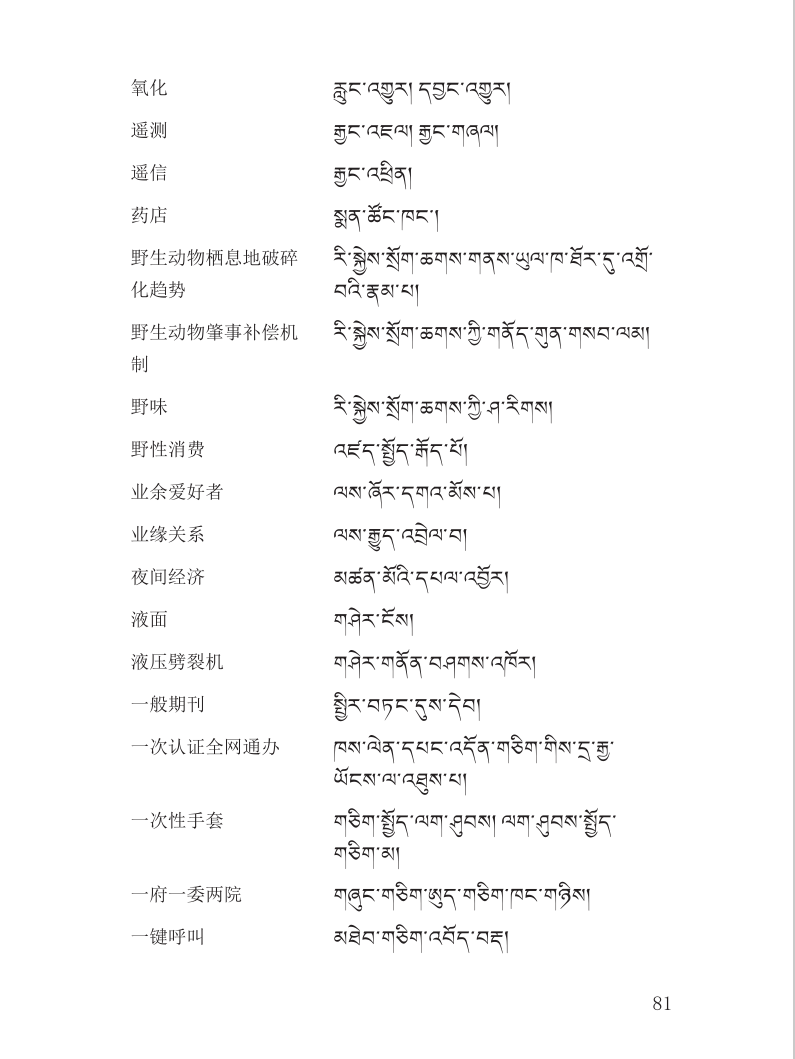 氧化 རླུང་འགྱུར། དབྱང་འགྱུར།
遥测 རྒྱང་འཇལ། རྒྱང་གཞལ།
遥信 རྒྱང་འཕྲིན།
药店 སྨན་ཚོང་ཁང་།
野生动物栖息地破碎 རི་སྐྱེས་སྲོག་ཆགས་གནས་ཡུལ་ཁ་ཐོར་དུ་འགྲོ་
化趋势 བའི་རྣམ་པ།
野生动物肇事补偿机 རི་སྐྱེས་སྲོག་ཆགས་ཀྱི་གནོད་གུན་གསབ་ལམ།
制
野味 རི་སྐྱེས་སྲོག་ཆགས་ཀྱི་ཤ་རིགས།
野性消费 འཛད་སྤྱོད་རྒོད་པོ།
业余爱好者 ལས་ཞོར་དགའ་མོས་པ།
业缘关系 ལས་རྒྱུད་འབྲེལ་བ།
夜间经济 མཚན་མོའི་དཔལ་འབྱོར།
液面 གཤེར་ངོས།
液压劈裂机 གཤེར་གནོན་བཤགས་འཁོར།
一般期刊 སྤྱིར་བཏང་དུས་དེབ།
一次认证全网通办 ཁས་ལེན་དཔང་འདོན་གཅིག་གིས་དྲ་རྒྱ་
ཡོངས་ལ་འཐུས་པ།
一次性手套 གཅིག་སྤྱོད་ལག་ཤུབས། ལག་ཤུབས་སྤྱོད་
གཅིག་མ།
一府一委两院 གཞུང་གཅིག་ཨུད་གཅིག་ཁང་གཉིས།
一键呼叫 མཐེབ་གཅིག་འབོད་བརྡ།
81